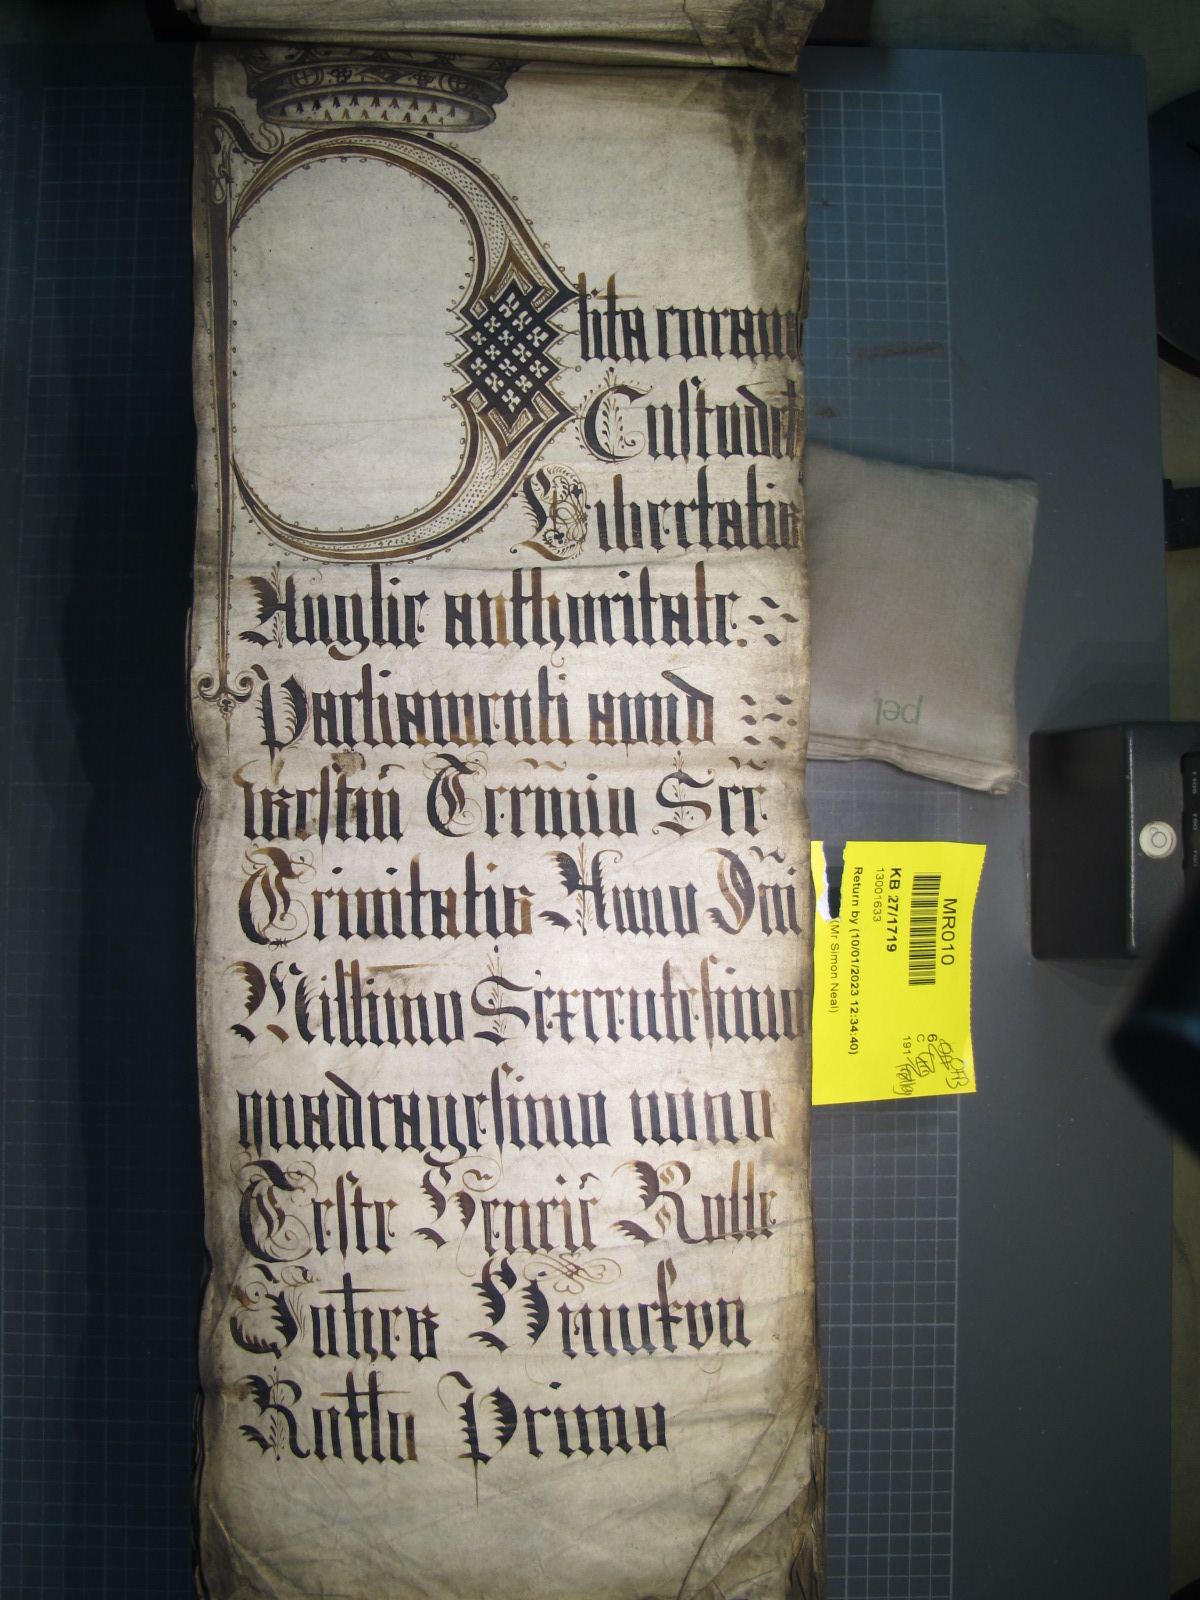 Plita coram
Custod
Libertatis
Anglie authoritate
Parliamenti apud
Westm̃ Term̃io Sc̃e
Trinitatis Anno Dñi
Millimo Sexcentesimo
quadragesimo nono
Teste Henric̃ Rolle
Rotlo Primo
pel
MR010
KB 27/1719
13001633
Return by (10/01/2023 12:34:40)
(Mr Simon Neal)
6
C
191